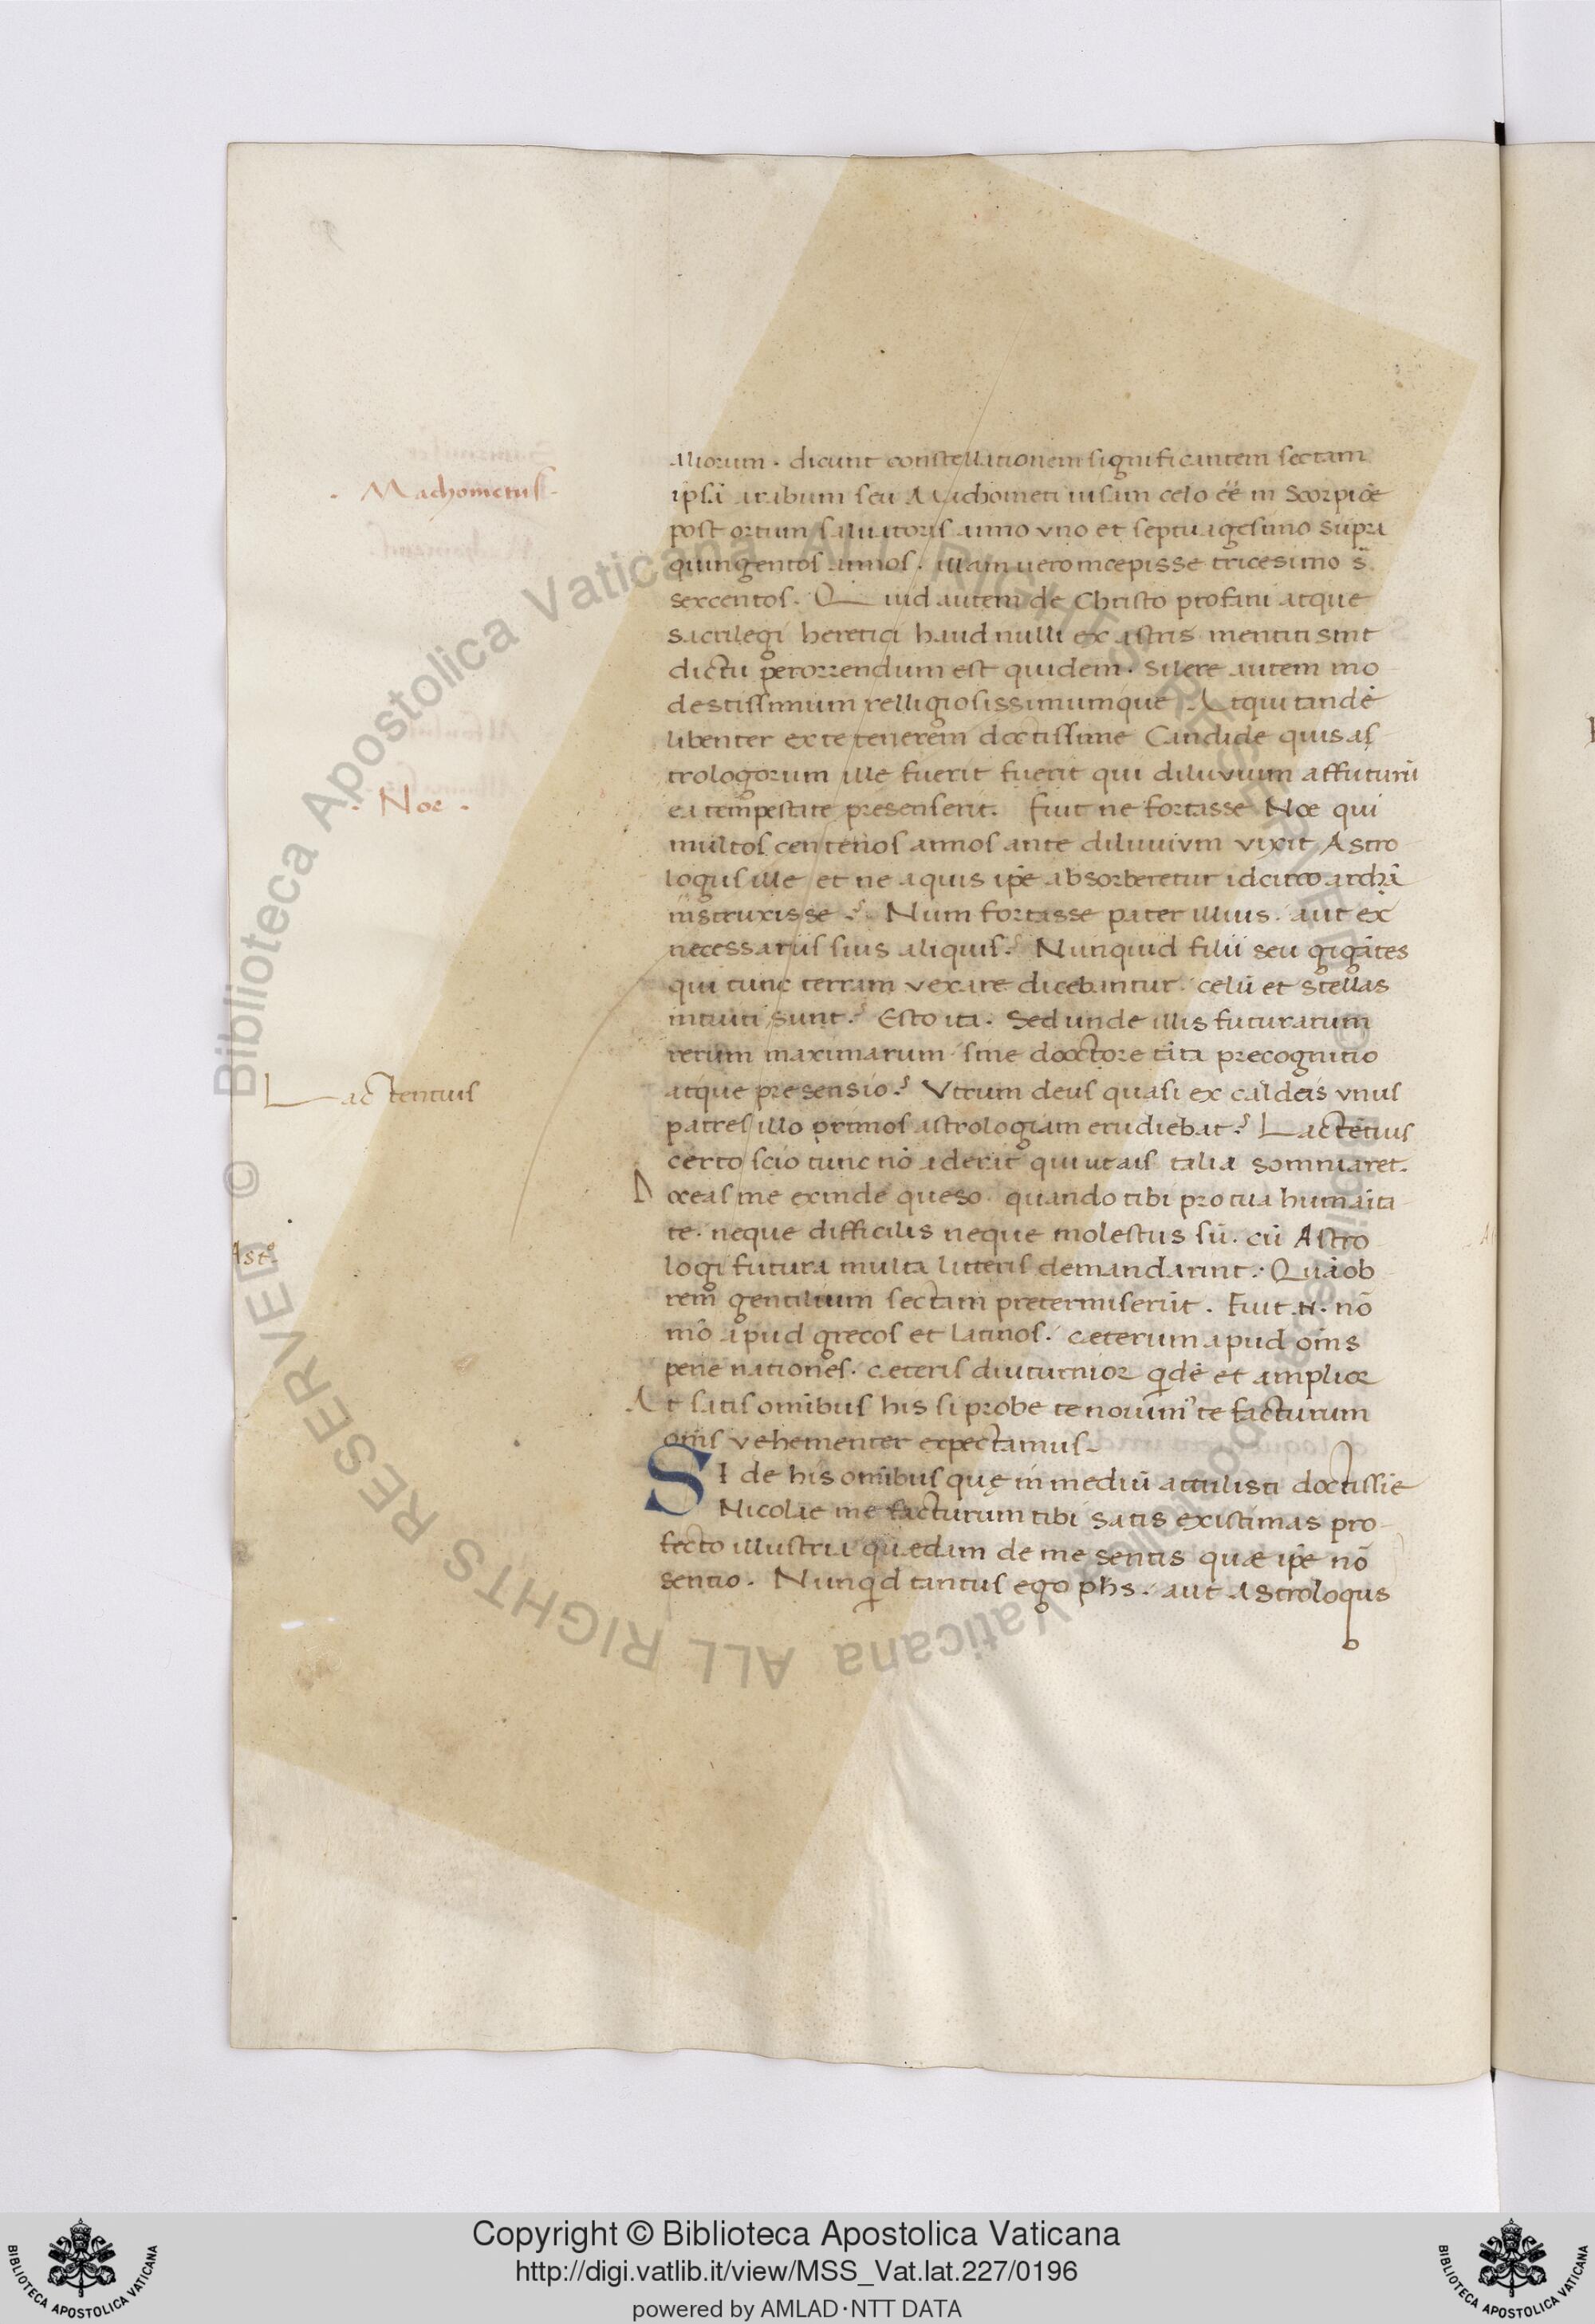 aliorum. dicunt constellationem significantem sectam
. Machometus.
ipsã arabum seu Machometi uisam celo eē in Scorpiõe
post ortum saluatoris anno vno et septuagesimo supra
quingentos annos. illam uero incepisse tricesimo s̃.
sexcentos. Quid autem de Christo profani atque
sacrilegi heretici haud nulli ex astris mentiti sint
dictu perorrendum est quidem. silere autem mo
destissimum relligiosissimumque. Atqui tandẽ
libenter ex te tenerem doctissime Candide quis as
trologorum ille fuerit fuerit qui diluvium affuturũ
. Noe .
ea tempestate presenserit. fuit ne fortasse Noe qui
multos centenos annos ante diluuivm vixit Astro
logus ille et ne aquis ip̃e absorberetur idcirco archã
instruxisse? Num fortasse pater illius. aut ex
necessariis suis aliquis? Nunquid filii seu gigãtes
qui tunc terram vexare dicebantur. celũ et stellas
intuiti sunt? Esto ita. Sed unde illis futurarum
rerum maximarum sine doctore tãta precognitio
Lactentius
atque presensio? Vtrum deus quasi ex caldeis vnus
patres illo primos astrologiam erudiebat? Lactẽtius
certo scio tunc nõ aderit qui ut ais talia somniaret.
Doceas me exinde queso quando tibi pro tua humaĩta
te. neque difficilis neque molestus sũ. cũ Astro
Ast.o
logi futura multa litteris demandarint. Quãob
rem gentilium sectam pretermiserũt. Fuit .N. nõ
mõ apud grecos et latinos. ceterum apud oms̃
pene nationes. ceteris diuturnior qidẽ et amplior
At satis omnibus his si probe te nouim' te facturum
oms̃ vehementer expectamus.
SI de his omnibus quę in mediũ attulisti doctissĩe
Nicolae me facturum tibi satis existimas pro
fecto illustria quaedam de me sentis quae ip̃e nõ
sentio. Nunqid tantus ego phs. aut Astrologus
© Biblioteca Apostolica Vaticana ALL RIGHTS RESERVED
Copyright © Biblioteca Apostolica Vaticana
http://digi.vatlib.it/view/MSS_Vat.lat.227/0196
powered by AMLAD·NTT DATA
BIBLIOTECA APOSTOLICA VATICANA
BIBLIOTECA APOSTOLICA VATICANA